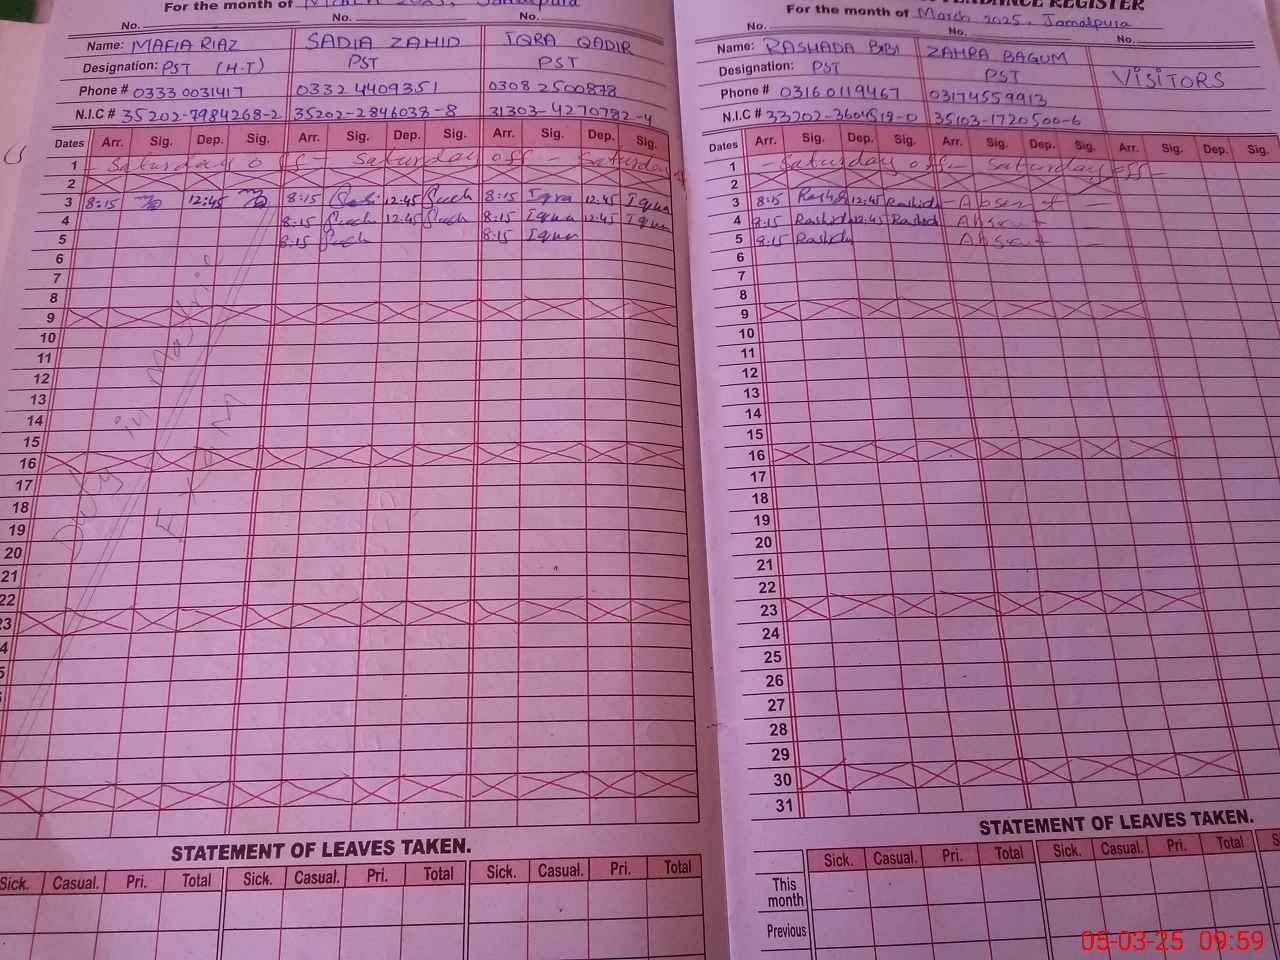 For the month of March 2025, Jamalpura
No. No. No.
Name: MAFIA RIAZ SADIA ZAHID IQRA QADIR
Designation: PST (H.T) PST PST
Phone # 0333 0031417 0332 4409351 0308 2500878
N.I.C # 35202-7984268-2 35202-2846038-8 31303-4270782-4
Dates Arr. Sig. Dep. Sig. Arr. Sig. Dep. Sig. Arr. Sig. Dep. Sig.
1 - Saturday off - Saturday off - Saturday
2
3 8:15 12:45 8:15 12:45 8:15 Iqra 12:45 Iqra
4 8:15 12:45 8:15 Iqra 12:45 Iqra
5 8:15 8:15 Iqra
6
7
8
9
10
11
12
13
14
15
16
17
18
19
20
21
22
23
4
5
Duty in Matric
Exam
STATEMENT OF LEAVES TAKEN.
Sick. Casual. Pri. Total Sick. Casual. Pri. Total Sick. Casual. Pri. Total
REGISTER
For the month of March 2025, Jamalpura
No. No. No.
Name: RASHADA BIBI ZAHRA BAGUM
Designation: PST PST VISITORS
Phone # 03160119467 03174559913
N.I.C # 33202-3604519-0 35103-1720500-6
Dates Arr. Sig. Dep. Sig. Arr. Sig. Dep. Sig. Arr. Sig. Dep. Sig.
1 - Saturday off - Saturday off -
2
3 8:15 Rashid 12:45 Rashid - Absent -
4 8:15 Rashid 12:45 Rashid Absent -
5 8:15 Rashid Absent -
6
7
8
9
10
11
12
13
14
15
16
17
18
19
20
21
22
23
24
25
26
27
28
29
30
31
STATEMENT OF LEAVES TAKEN.
Sick. Casual. Pri. Total Sick. Casual. Pri. Total S
This month
Previous
05-03-25 09:59